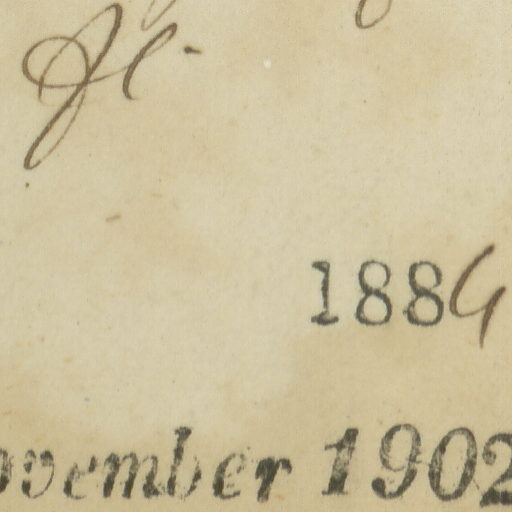 1884
ovember 1902